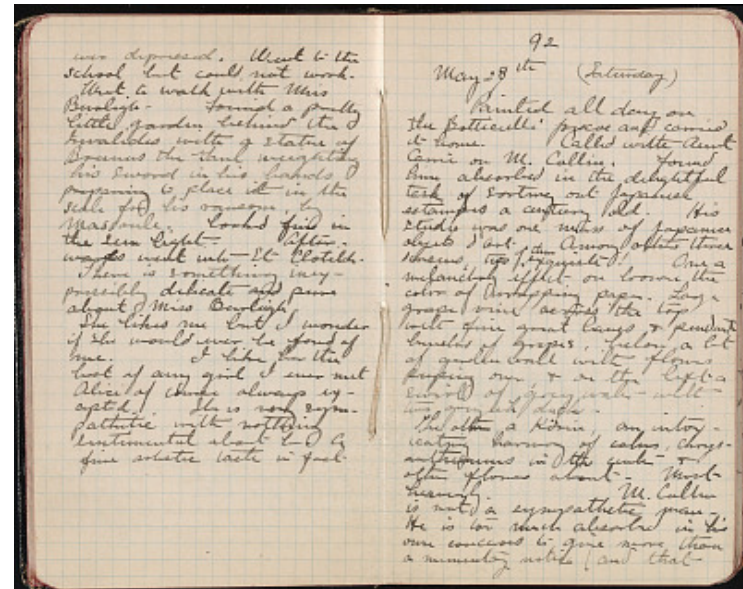 was depressed. Went to the
school but could not work.
Went to walk with Miss
Burleigh - Found a pretty
little garden behind the
Invalides with a statue of
Brennus the Gaul, weighting
his sword in his hands
preparing to place it in the
scale for his ransom by
Looked fine in
the sun light. After-
wards went into St Clotilde.
There is something inex-
pressibly delicate and pure
about Miss Burleigh
She likes me but I wonder
if she would ever be fond of
me. I like her the
best of any girl I ever met
Alice of course always ex-
cepted. She is very sym-
pathetic with nothing
sentimental about her &
fine artistic taste in fact.
92
May 28th (Saturday)
Painted all day on
the Botticelli fresco and carried
it home. Called with Aunt
Carrie on M. Cullin. Found
him absorbed in the delightful
task of sorting out Japanese
estampes a century old. His
studio was one mass of Japanese
objets d'art. Among other things
screens, two exquisite! One a
melancholy effect on brown the
color of wrapping paper. Long
grape vine across the top
with fine great leaves, & pendant
bunches of grapes, below a bit
of garden wall with flowers
peeping over, & on the left a
of grey water with
The other a Korin, an intox-
icating harmony of colors, chrys-
anthemums in the &
other flowers about - Most
heavenly. M. Cullin
is not a sympathetic man -
He is too much absorbed in his
own concerns to give more than
a momentary notice (and that